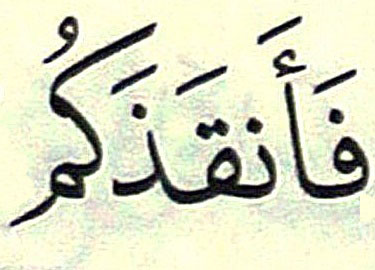 فَأَنقَذَكُم